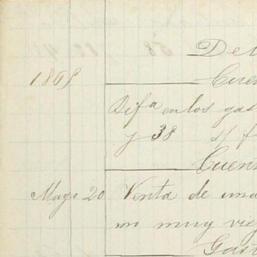 De
1869
Cuen
Difª en los gas
y 38 s/ f
Cuen
Mayo 20 Venta de una
un muy vie
Gast